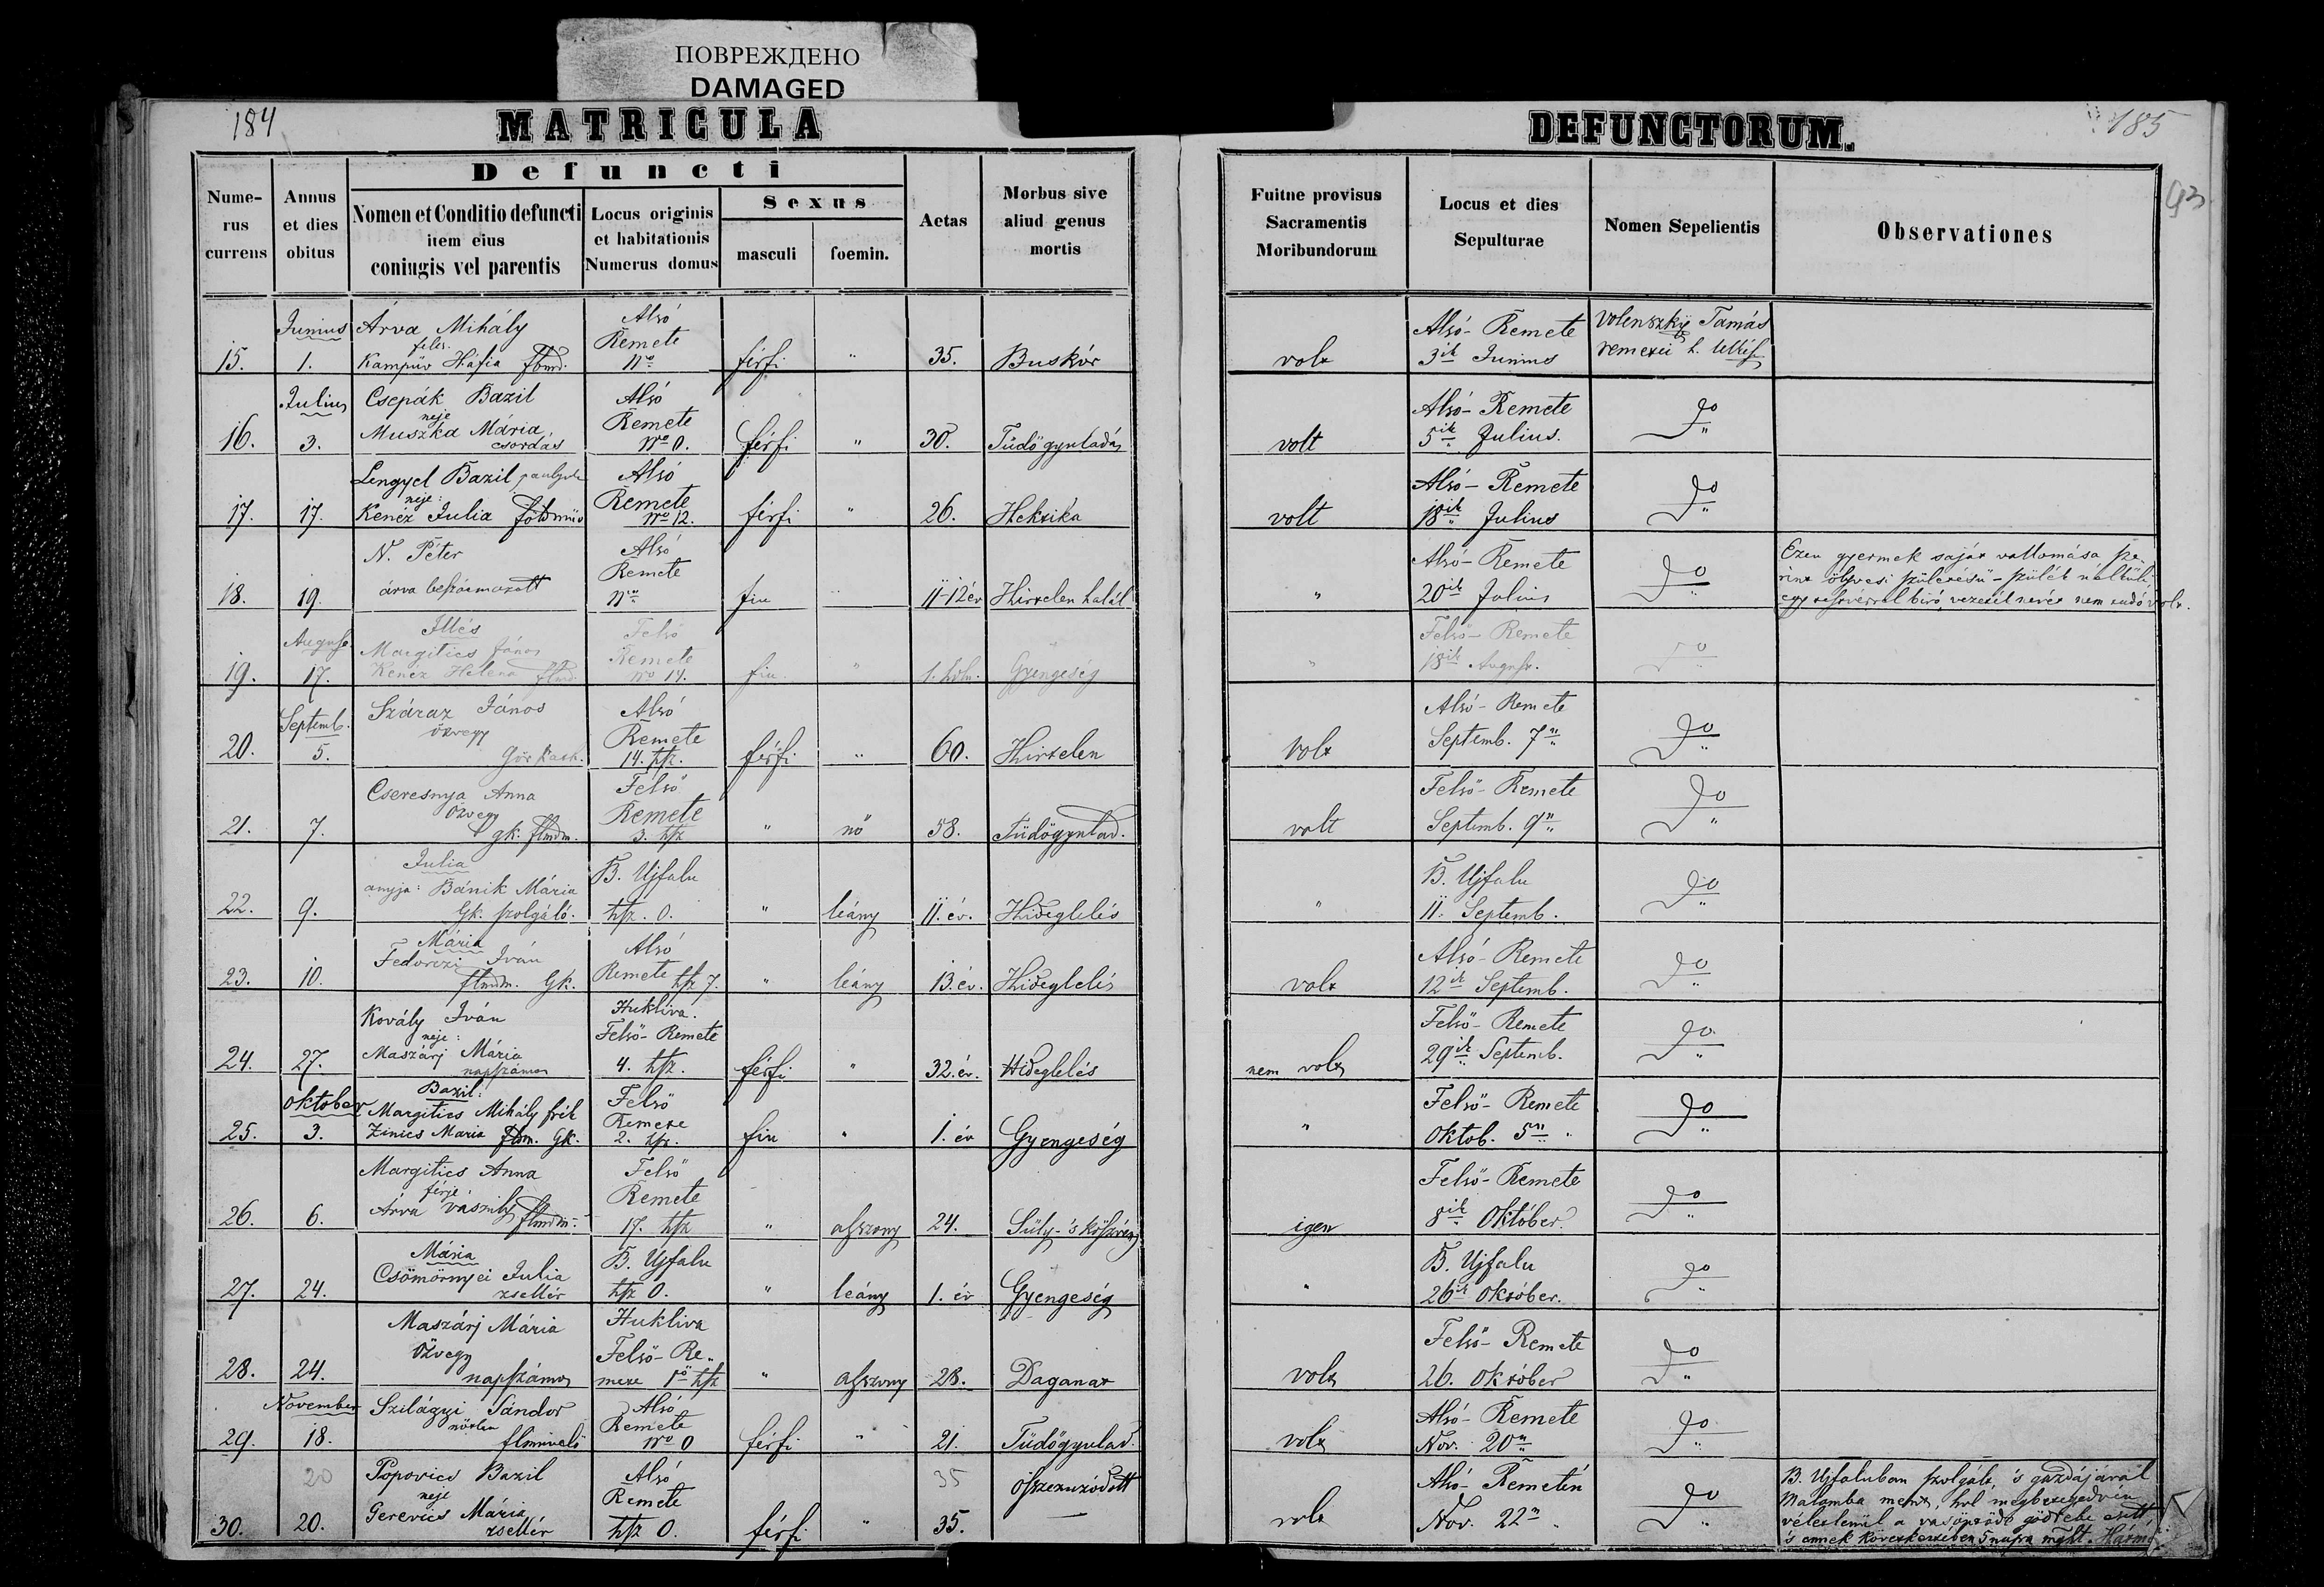 ПОВРЕЖДЕНО
DAMAGED
184
MATRICULA
DEFUNCTORUM.
185
93
Defuncti
Nume-
rus
currens
Annus
et dies
obitus
Nomen et Conditio defuncti
item eius
coniugis vel parentis
Locus originis
et habitationis
Numerus domus
Sexus
masculi
foemin.
Aetas
Morbus sive
aliud genus
mortis
Fuitne provisus
Sacramentis
Moribundorum
Locus et dies
Sepulturae
Nomen Sepelientis
Observationes
Junius Árva Mihály Alsó
Remete
15. 1. Háfia No férfi " 35. Buskór
volt Alsó-Remete 3ik Junius Volenszky Tamás
Julius Csepák Bazil Alsó
neje Remete
16. 3. Muszka Mária csordás No 0. férfi " 30. Tüdőgyuladás
volt Alsó-Remete 5ik Julius. Do
Lengyel Bazil Alsó
neje: Remete
17. 17. Kenéz Julia földmüv No 12. férfi " 26. Hektika
volt Alsó-Remete 18ik Julius Do
N. Péter Alsó
Remete
18. 19. árva No fiu 11-12 év Hirtelen halál
" Alsó-Remete 20ik Julius Do
Ezen gyermek saját vallomása sze-
rint születésü - szülék nélküli
vezeték nevét nem tudó volt.
August Illés Felső
Margitics János Remete
19. 17. Kenéz Helena No 14. fiu. " Gyengeség
" Felső-Remete 18ik August. Do
Septemb. Száraz János Alsó
özvegy Remete
20. 5. 14. hsz. férfi " 60. Hirtelen
volt Alsó-Remete Septemb. 7n Do
Cseresnya Anna Felső
Özvegy Remete
21. 7. gk. flmdm. 3. hsz " nő 58. Tüdőgyulad.
volt Felső-Remete Septemb. 9n Do
Julia B. Ujfalu
anyja: Bánik Mária
22. 9. Gk. szolgáló. hsz. 0. " leány 11. év. Hideglelés
" B. Ujfalu 11. Septemb. Do
Mária Alsó
Fedorczi Iván Remete hsz 7.
23. 10. flmdm. Gk. " leány 13. év. Hideglelés
volt Alsó-Remete 12ik Septemb. Do
Kovály Iván Hukliva.
neje: Felső-Remete
24. 27. Maszárj Mária napszámos 4. hsz. férfi " 32. év. Hideglelés
nem volt Felső-Remete 29ik Septemb. Do
Oktober Bazil: Felső
Margitics Mihály Remete
25. 3. Zinics Maria flm. Gk. 2. hsz. fiu " 1. év Gyengeség
" Felső-Remete Oktob. 5n Do
Margitics Anna Felső
férje Remete
26. 6. Árva Vászily flmdm. 17. hsz " asszony 24. Süly-'s
igen Felső-Remete 8ik Október. Do
Mária B. Ujfalu
27. 24. Csömörnyei Julia zsellér hsz 0. " leány 1. év Gyengeség
" B. Ujfalu 26ik Október. Do
Maszárj Mária Hukliva
Özvegy Felső-Re-
28. 24. napszámos mete hsz " asszony 28. Daganat
volt Felső-Remete 26. Október Do
November Szilágyi Sándor Alsó
nőtlen Remete
29. 18. flmivelő No 0 férfi " 21. Tüdőgyulad.
volt Alsó-Remete Nov. 20n Do
20 Popovics Bazil Alsó 35
neje Remete
30. 20. Gerevics Mária zsellér hsz 0. férfi " 35. összezuzódott
volt Alsó-Remetén Nov. 22n Do
B. Ujfaluban szolgált, 's gazdájával
Malomba ment, hol
véletlenül a esett,
's ennek következtében 5 napra mght.